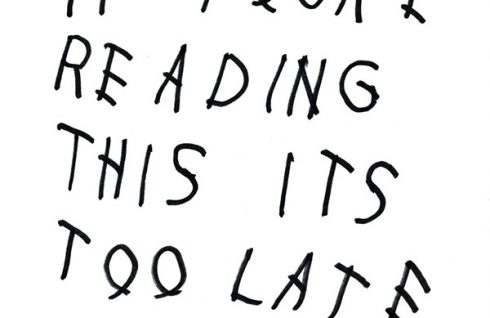 READING
THIS ITS
TOO LATE